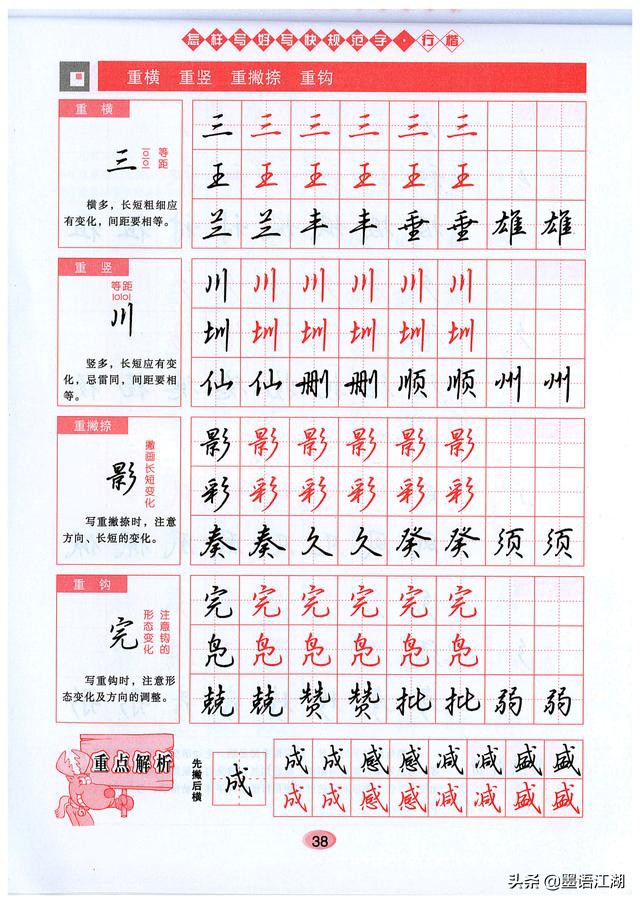 怎样写好写快规范字·行楷
重横 重竖 重撇捺 重钩
重横
三
等距
横多，长短粗细应
有变化，间距要相等。
三 三 三 三 三 三
王 王 王 王 王 王
兰 兰 丰 丰 垂 垂 雄 雄
重竖
等距
川
竖多，长短应有变
化，忌雷同，间距要相
等。
川 川 川 川 川 川
圳 圳 圳 圳 圳 圳
仙 仙 删 删 顺 顺 州 州
重撇捺
影
撇画长短变化
写重撇捺时，注意
方向、长短的变化。
影 影 影 影 影 影
彩 彩 彩 彩 彩 彩
奏 奏 久 久 癸 癸 须 须
重钩
完
注意钩的
形态变化
写重钩时，注意形
态变化及方向的调整。
完 完 完 完 完 完
凫 凫 凫 凫 凫 凫
兢 兢 赞 赞 批 批 弱 弱
重点解析
先撇后横
成
成 成 感 感 减 减 盛 盛
成 成 感 感 减 减 盛 盛
38
头条 @墨语江湖